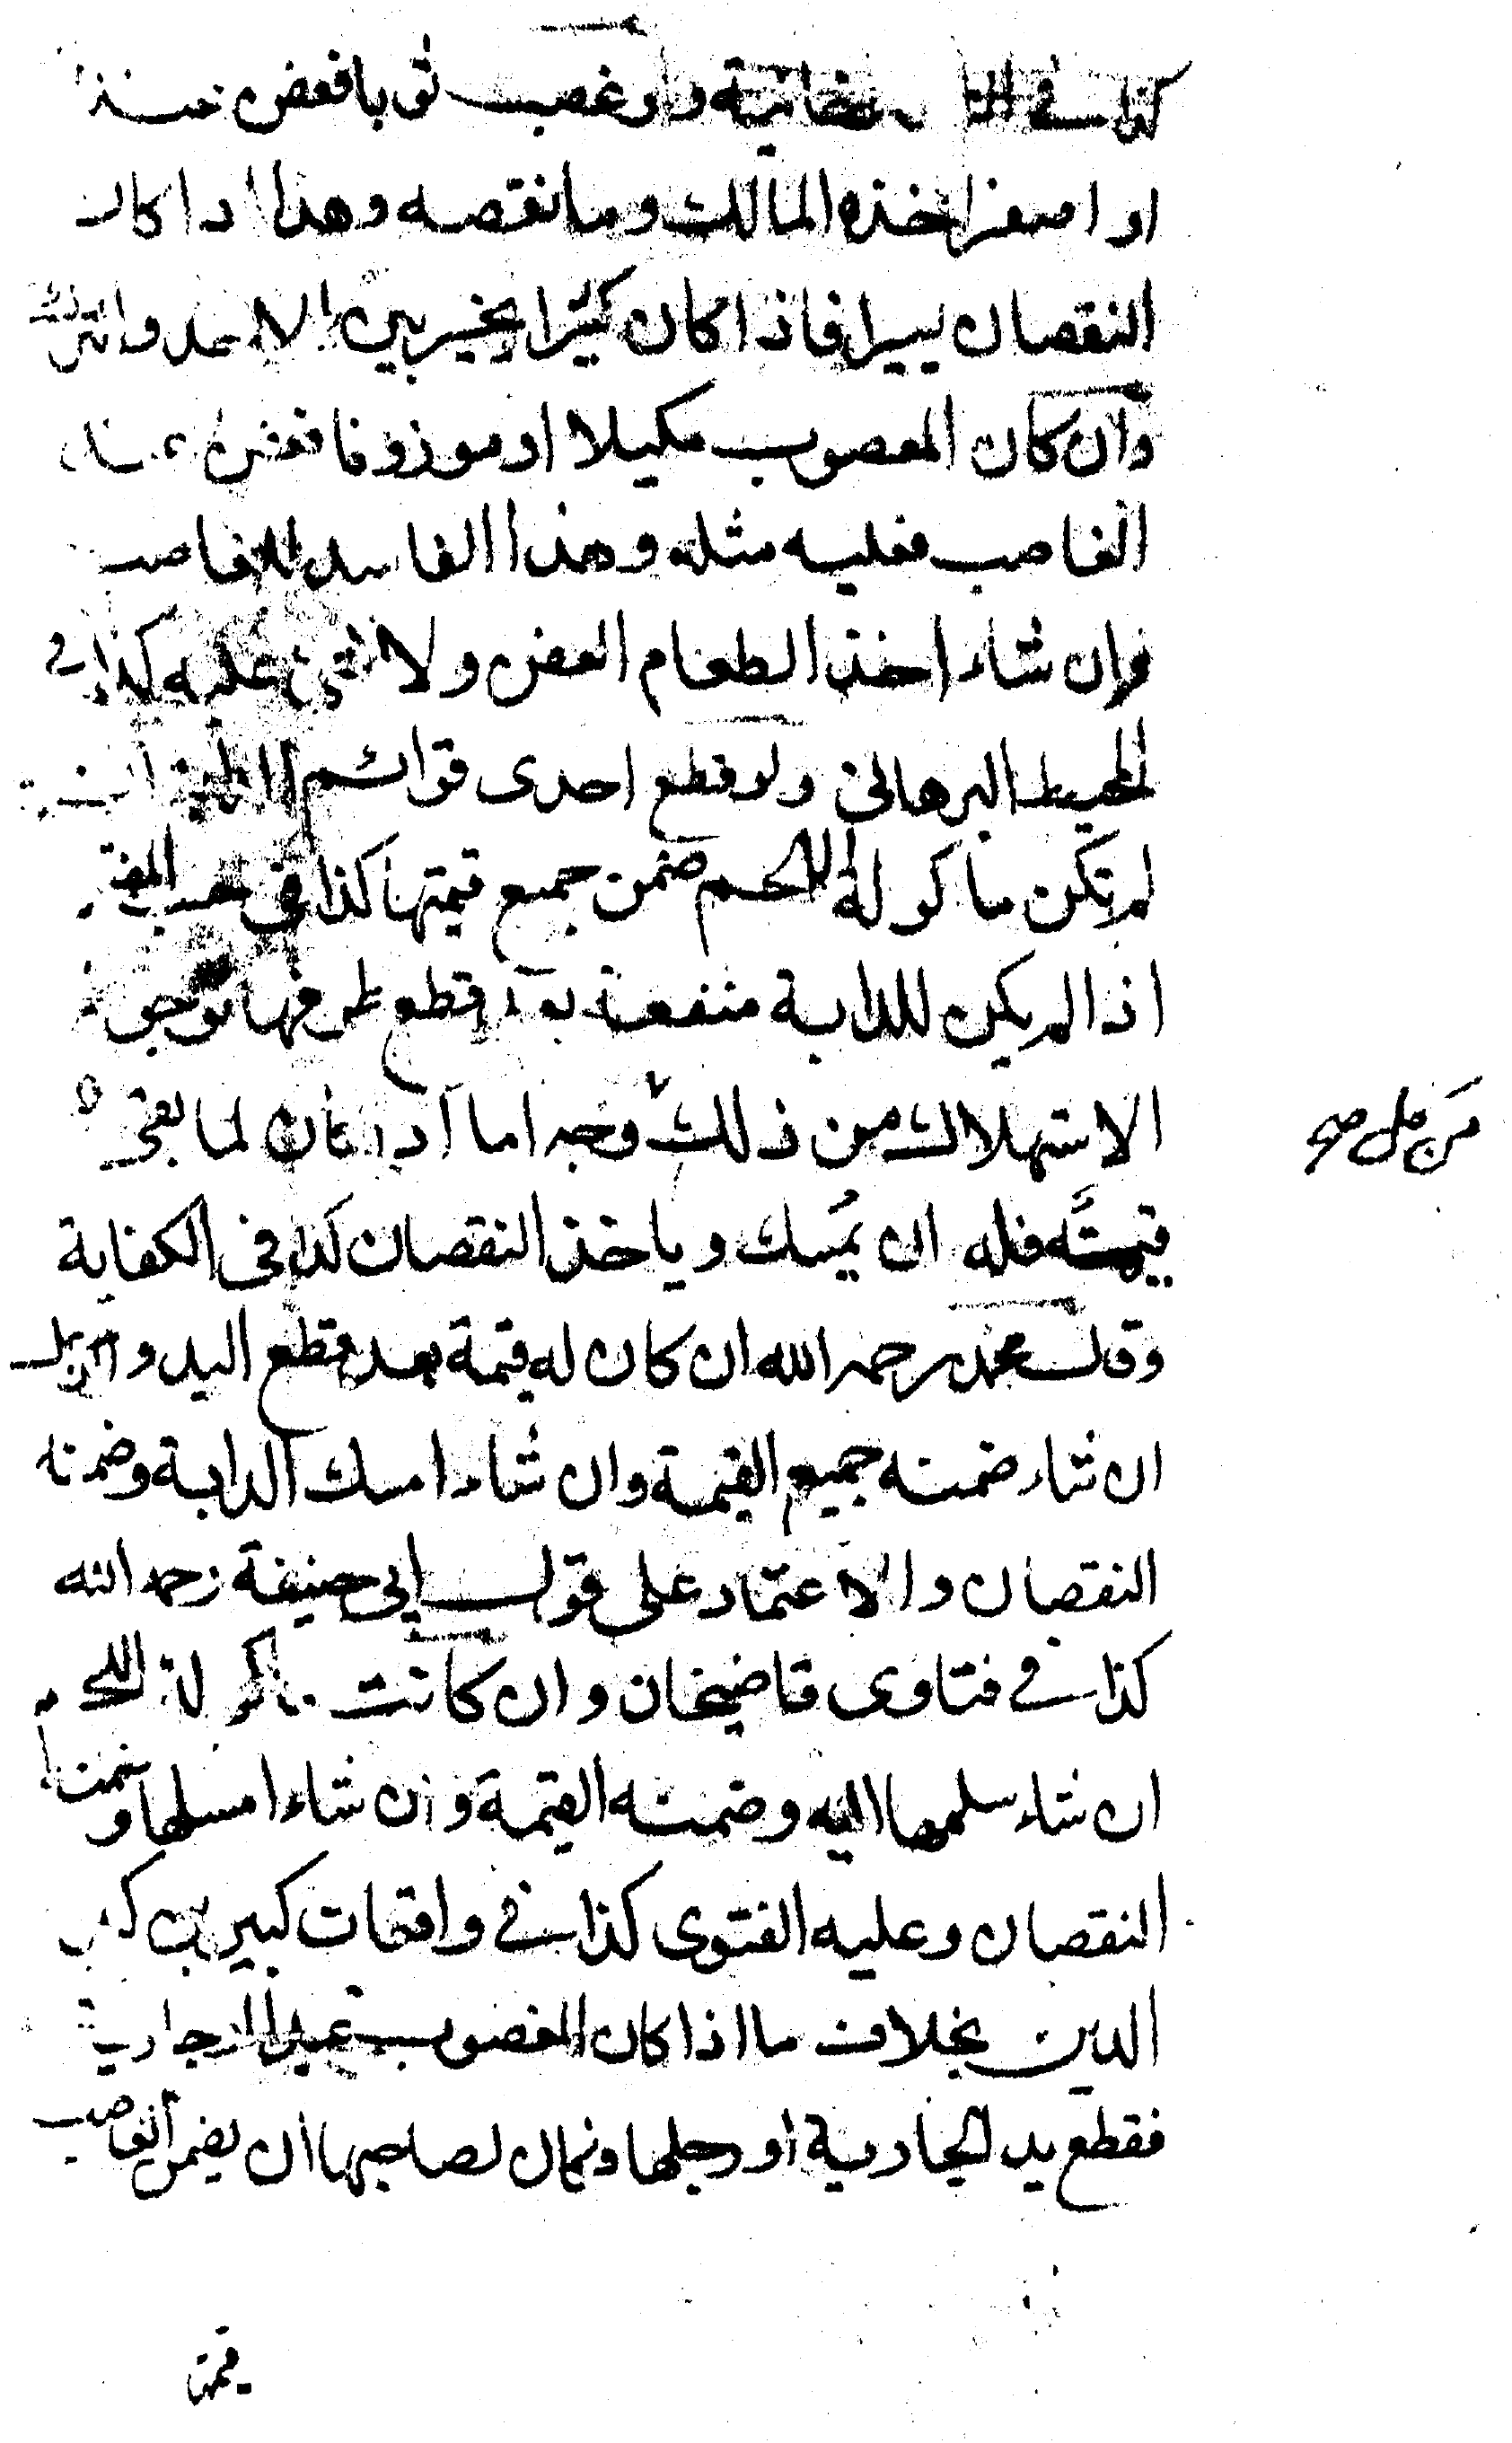 كذا في التتارخانية ولو غصب ثوبا فعفن عنده
او اصفر اخذه المالك وما نقصه وهذا اذا كان
النقصان يسيرا فاذا كان كثيرا يخير بين الاخذ والترك
وان كان المغصوب مكيلا او موزونا فعفن عند
الغاصب فعليه مثله وهذا الفاسد للغاصب
وان شاء اخذ الطعام العفن ولا شيء عليه كذا في
المحيط البرهاني ولو قطع احدى قوائم الدابة
لم تكن ماكولة اللحم ضمن جميع قيمتها كذا في
اذا لم يكن للدابة منفعة بعد قطع طرفها
الاستهلاك من ذلك وجه اما اذا كان لما بقي
من كل وجه
قيمته فله ان يمسك وياخذ النقصان كذا في الكفاية
وقال محمد رحمه الله ان كان له قيمة بعد قطع اليد والرجل
ان شاء ضمنه جميع القيمة وان شاء امسك الدابة وضمنه
النقصان والاعتماد على قول ابي حنيفة رحمه الله
كذا في فتاوى قاضيخان وان كانت ماكولة اللحم
ان شاء سلمها اليه وضمنه القيمة وان شاء امسكها وضمنه
النقصان وعليه الفتوى كذا في واقعات كبير بن
الدين بخلاف ما اذا كان المغصوب عبدا او جارية
فقطع يد الجارية او رجلها وكان لصاحبها ان يضمن الغاصب
قيمتها